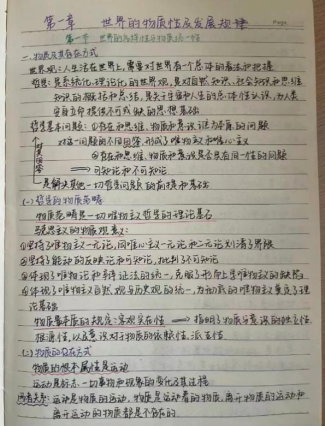 第一章 世界的物质性及发展规律
Page
第一节 世界的多样性与物质统一性
一、物质及其存在方式
世界观：人生活在世界上，需要对世界有个总体的看法和把握
哲学：是系统化、理论化的世界观，是对自然知识、社会知识和思维
知识的概括和总结，是关于宇宙和人生的总体性认识，为人类
安身立命提供不可或缺的思想基础
哲学基本问题：①存在和思维、物质和意识谁为本原的问题
对这一问题的不同回答，形成了唯物主义和唯心主义
②存在和思维、物质和意识是否具有同一性的问题
⇒可知论和不可知论
是解决其他一切哲学问题的前提和基础
(一)哲学的物质范畴
物质范畴是一切唯物主义哲学的理论基石
马克思主义的物质观意义：
①坚持了唯物主义一元论，同唯心主义一元论和二元论划清了界限
②坚持了能动的反映论和可知论，批判了不可知论
③体现了唯物论和辩证法的统一，克服了形而上学唯物主义的缺陷
④体现了唯物主义自然观与历史观的统一，为彻底的唯物主义奠定了理
论基础
物质最本质的规定：客观实在性 ⇒ 指明了物质与意识的独立性、
根源性，以及意识对于物质的依赖性、派生性
(二)物质的存在方式
物质的根本属性是运动
运动是标志一切事物和现象的变化及其过程
两者关系：运动是物质的运动，物质是运动着的物质，离开物质的运动和
离开运动的物质都是不存在的